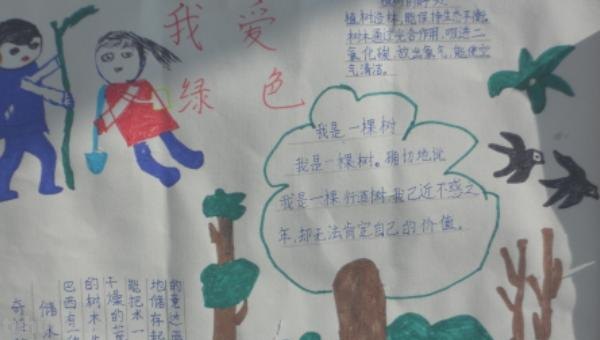 我爱
绿色
植树造林,能保持生态平衡。
树木通过光合作用,吸进二
氧化碳,放出氧气,能使空
气清洁。
我是一棵树
我是一棵树。确切地说
我是一棵行道树,我已近不惑之
年,却无法肯定自己的价值。
地储存起
能把水一
的树木
巴西有
储水
奇